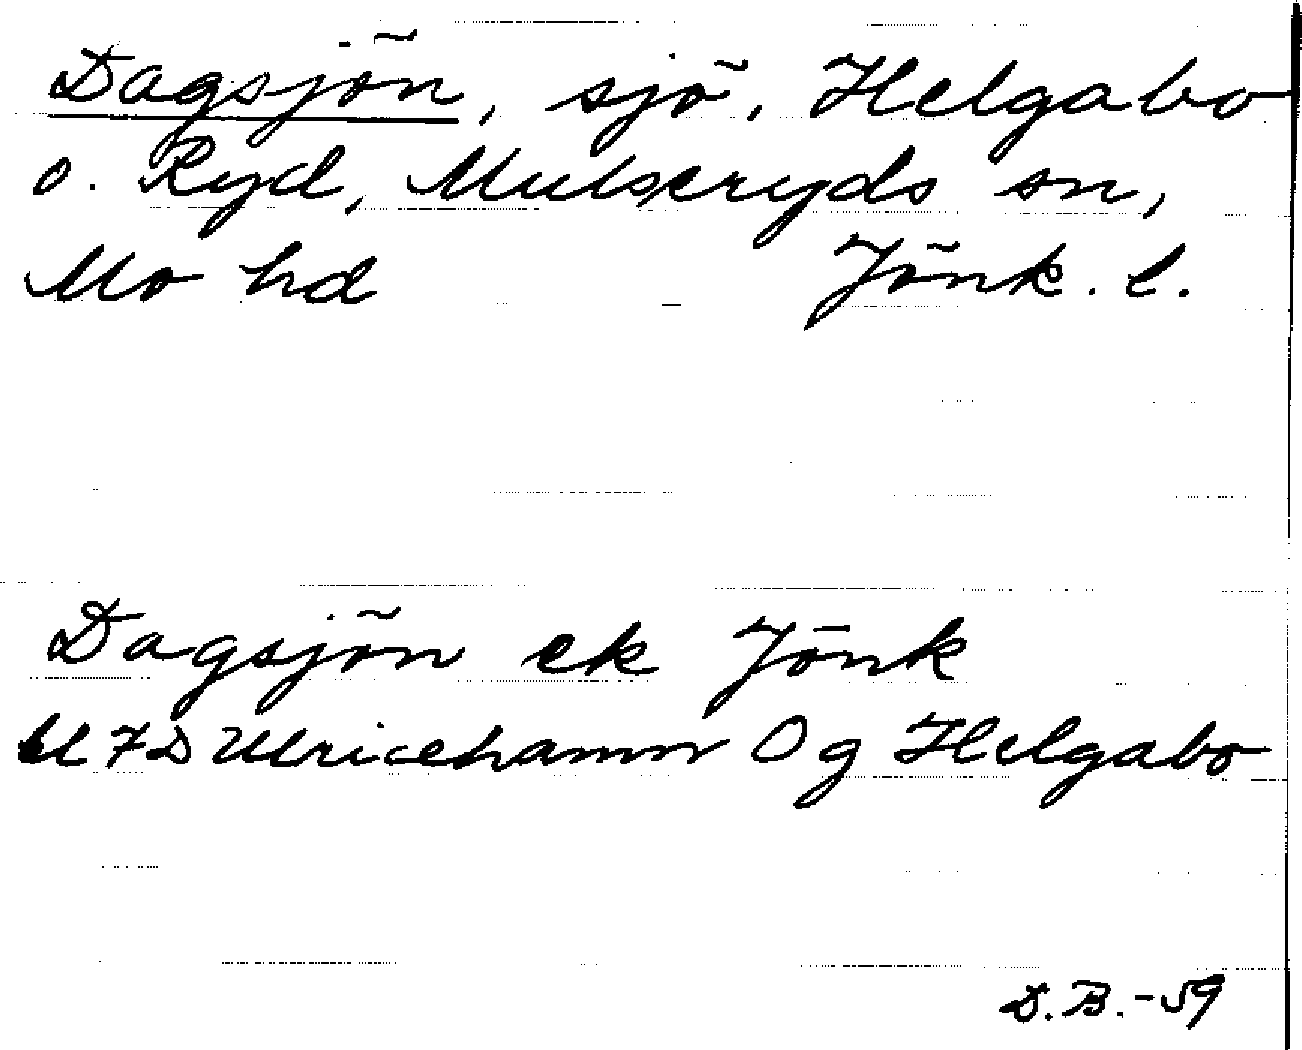 Dagsjön, sjö, Helgabo
o. Ryd, Mulseryds sn,
Mo hd Jönk. l.
Dagsjön ek Jönk
7D Ulricehamn Og Helgabo
D.B.-59